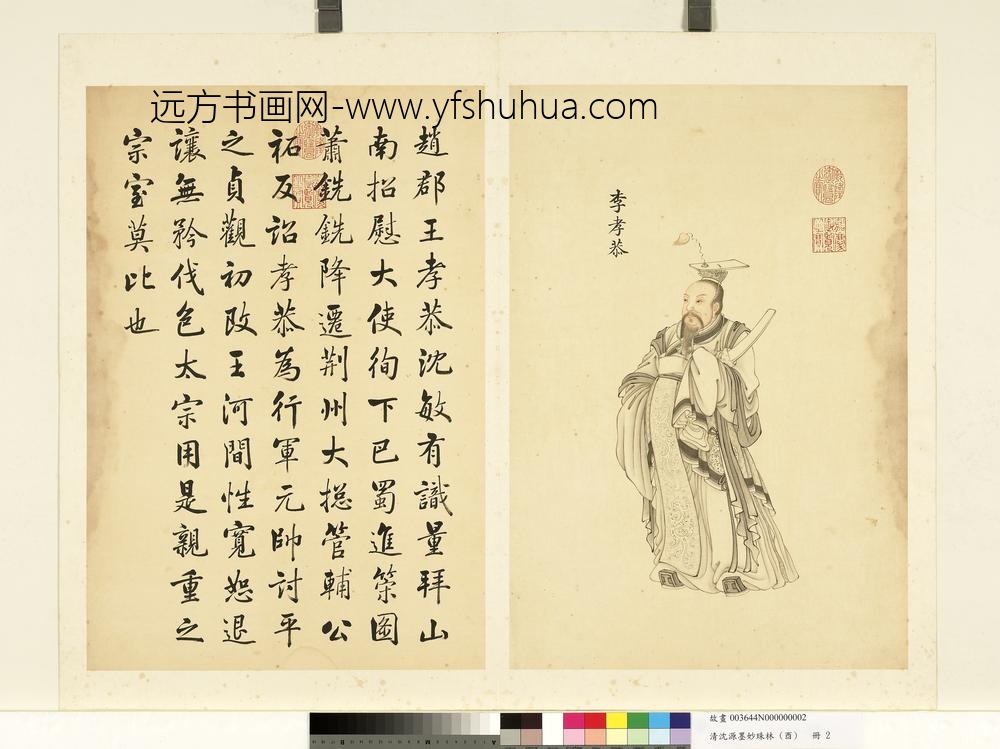 远方书画网-www.yfshuhua.com
李孝恭
趙郡王孝恭沈敏有識量拜山
南招慰大使徇下巴蜀進策圖
蕭銑銑降遷荆州大揔管輔公
祏反詔孝恭為行軍元帥討平
之貞觀初改王河間性寬恕退
讓無矜伐色太宗用是親重之
宗室莫比也
故畫 003644N000000002
清沈源墨妙珠林(酉) 冊 2